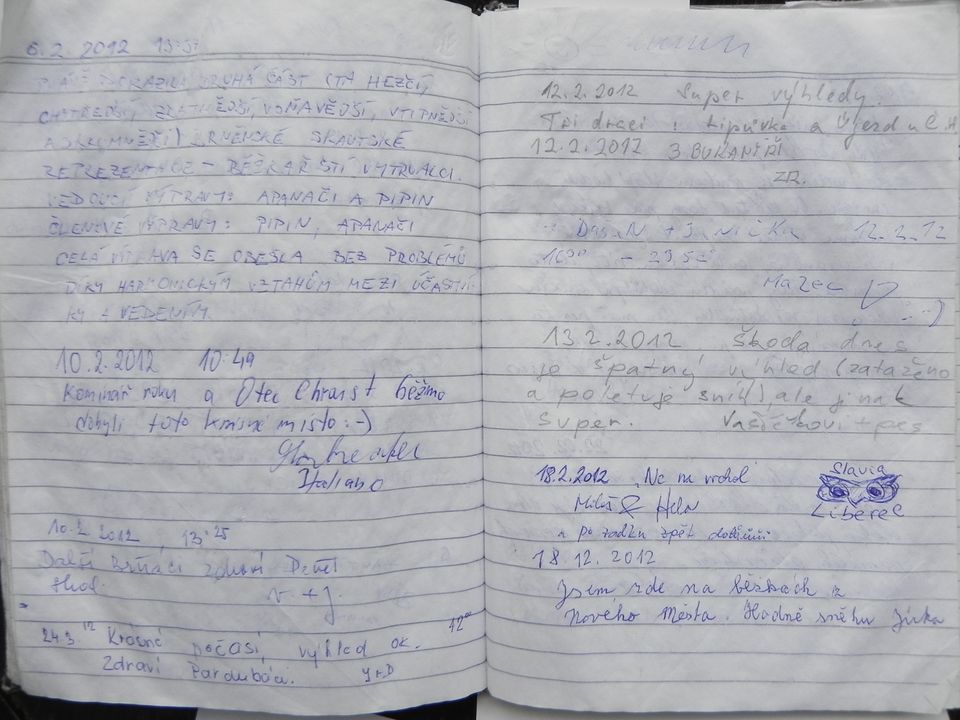 6.2.2012 13:37
PRÁVĚ DORAZILA DRUHÁ ČÁST (TA HEZČÍ,
CHYTŘEJŠÍ, ZDATNĚJŠÍ, VOŇAVĚJŠÍ, VTIPNĚJŠÍ
A SKROMNĚJŠÍ) BRNĚNSKÉ SKAUTSKÉ
REPREZENTACE – BĚŽKAŘŠTÍ VYTRVALCI.
VEDOUCÍ VÝPRAVY: APANAČI A PIPIN
ČLENOVÉ VÝPRAVY: PIPIN, APANAČI
CELÁ VÝPRAVA SE OBEŠLA BEZ PROBLÉMŮ
DÍKY HARMONICKÝM VZTAHŮM MEZI ÚČASTNÍ-
KY A VEDENÍM.
10.2.2012 10:49
Kominář roku a Otec Chrast běžmo
dobyli toto krásné místo :-)
Italiano
10.2.2012, 13:25
Další Brňáci zdraví
v + j.
24.3.12 Krásné počasí, výhled ok. 12°°
Zdraví Pardubáci. J+D
12.2.2012 Super výhledy.
Tři draci : Lipůvka a Újezd u Č.H
12.2.2012 3 BUKANÝŘI
ZR.
DušaN + Janička 12.2.12
Mazec
:-)
13.2.2012 Škoda dnes
je špatný výhled (zataženo
a poletuje sníh) ale jinak
super. Vašíčkovi + pes
18.2.2012 Ne na vrchol
Miloš & Hela
a po zadku zpět dolů
Slavia
Liberec
18.12.2012
Jsem zde na běžkách z
Nového Města. Hodně sněhu Jirka